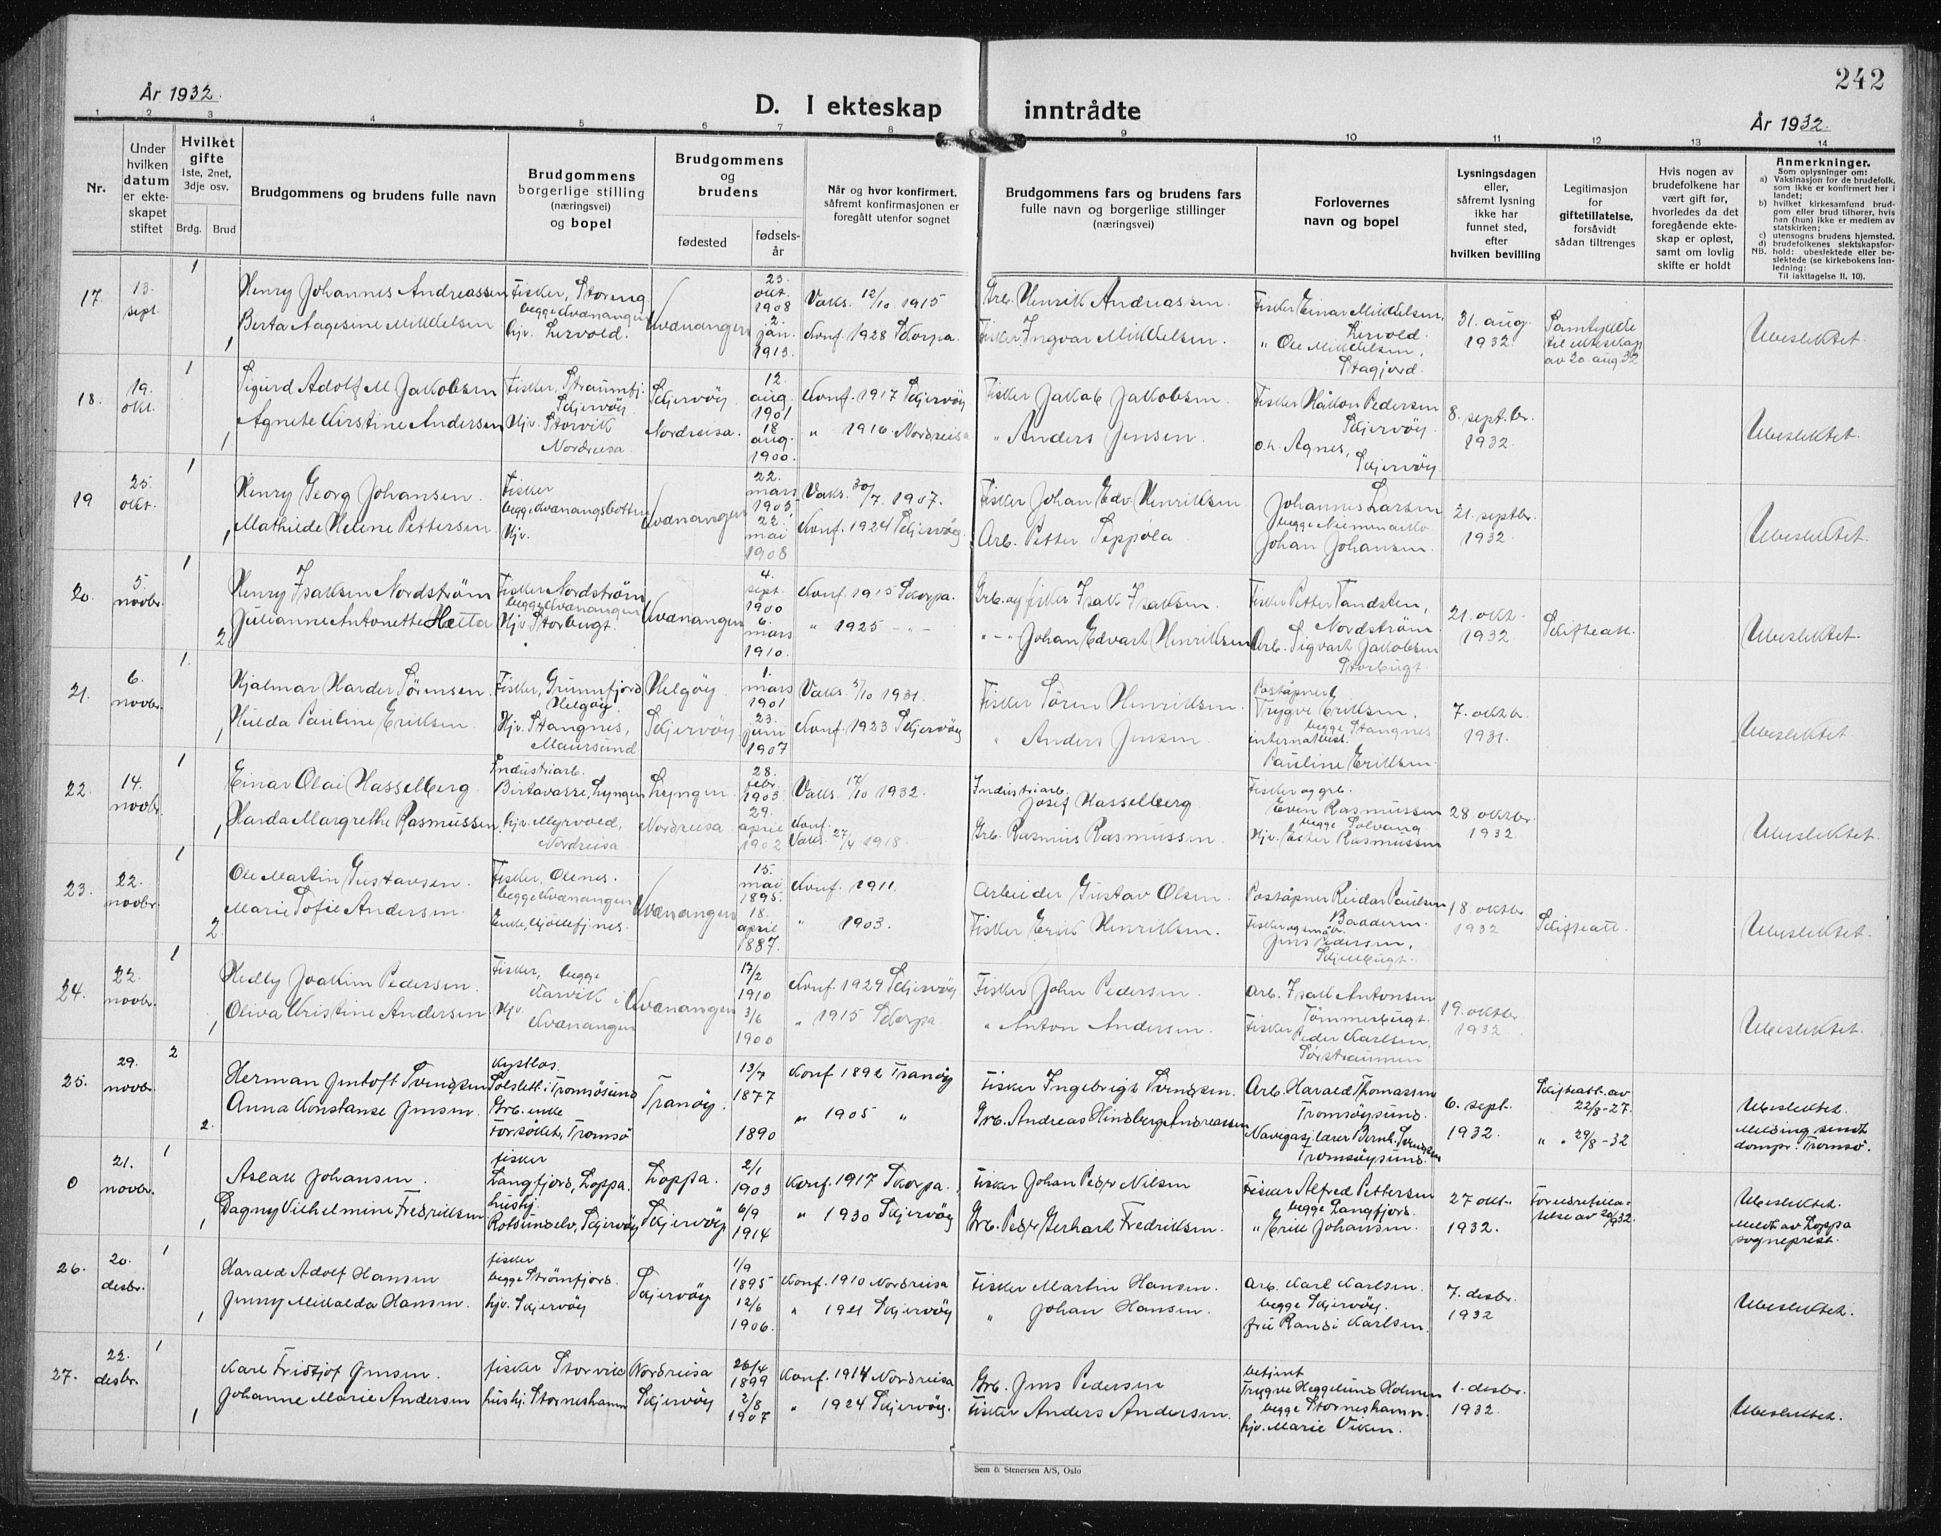 242
År 1932.
D. I ekteskap inntrådte
År 1932.
1 2 3 4 5 6 7 8 9 10 11 12 13 14
Nr.
Under hvilken datum er ekteskapet stiftet
Hvilket gifte 1ste, 2net, 3dje osv.
Brdg. Brud
Brudgommens og brudens fulle navn
Brudgommens borgerlige stilling (næringsvei) og bopel
Brudgommens og brudens
fødested
fødselsår
Når og hvor konfirmert, såfremt konfirmasjonen er foregått utenfor sognet
Brudgommens fars og brudens fars fulle navn og borgerlige stillinger (næringsvei)
Forlovernes navn og bopel
Lysningsdagen eller, såfremt lysning ikke har funnet sted, efter hvilken bevilling
Legitimasjon for giftetillatelse, forsåvidt sådan tiltrenges
Hvis nogen av brudefolkene har vært gift før, hvorledes da det foregående ekteskap er opløst, samt om lovlig skifte er holdt
Anmerkninger.
Som oplysninger om:
a) Vaksinasjon for de brudefolk, som ikke er konfirmert her i landet;
b) hvilket kirkesamfund brudgom eller brud tilhører, hvis han (hun) ikke er medlem av statskirken;
c) utensogns brudens hjemsted.
d) brudefolkenes slektskapsforhold: ubeslektede eller beslektede (se kirkebokens innledning:
NB. Til iakttagelse II. 10).
17. 13. sept. 1
Henry Johannes Andreassen Fisker, Storeng
begge Kvænangen
Kvænangen 23. okt. 1908
Vaks. 12/10 1915
Grb. Henrik Andreassen.
Fisker Einar Mikkelsen,
31. aug. 1932.
Samtykke til ekteskap av 20 aug 32
Ubeslektet.
1 Berta Aagesine Mikkelsen hjv. Lervold.
2. jan. 1913.
Konf. 1928 Skorpa.
Fisker Ingvar Mikkelsen.
Lervold.
" Ole Mikkelsen,
18. 19. okt. 1
Sigurd Adolf M Jakobsen Fisker, Straumfj. Skjervøy.
Skjervøy 12. aug. 1901
Konf. 1917 Skjervøy
Fisker Jakob Jakobsen.
Fisker Håkon Pedersen Skjervøy.
8. septbr. 1932.
Ubeslektet.
1 Agnete Kirstine Andersen Hjv. Storvik Nordreisa.
Nordreisa. 18 aug. 1900.
" 1916 Nordreisa
" Anders Jensen.
o.h. Agnes, Skjervøy.
19 25. okt. 1
Henry Georg Johansen. Fisker
begge Kvænangsbotten
Kvænangen 22. mars 1905
Vaks. 30/7. 1907.
Fisker Johan Edv. Henriksen
Johannes Larsen
21. septbr. 1932.
Ubeslektet.
1 Mathilde Helene Pettersen Hjv.
22. mai 1908
Konf. 1924 Skjervøy.
Arb. Petter Seppola
Johan Johansen.
20. 5. novbr. 1
Henry Isaksen Nordstrøm Fisker Nordstrøm,
begge Kvænangen
Kvænangen 4. sept. 1900
Konf. 1915 Skorpa.
Grb. og fisker Isak Isaksen.
Fisker Petter Tandsten, Nordstrøm
21. oktbr. 1932.
Skifteatt.
Ubeslektet.
2. Julianne Antonette Hætta Hjv. Storbugt.
6. mars 1910.
" 1925 - " -
" - " Johan Edvart Henriksen
Arb. Sigvart Jakobsen Storbugt.
21. 6. novbr. 1.
Hjalmar Harder Sørensen Fisker, Grunnfjord Helgøy.
Helgøy. 1. mars 1901
Vaks. 5/10 1931.
Fisker Søren Henriksen.
Poståpner Trygve Eriksen.
begge Stangnes
7. oktbr. 1931.
Ubeslektet.
1 Hilda Pauline Eriksen. Hjv. Stangnes, Maursund
Skjervøy 23. juni 1907
Konf. 1923 Skjervøy
" Anders Jensen
Pauline Eriksen.
22. 14. novbr. 1
Einar Olai Hasselberg. Industriarb. Birtavarre, Lyngen
Lyngen. 28. febr. 1903
Vaks. 17/10 1932.
Industriarb. Josef Hasselberg
Fisker og grb. Even Rasmussen
begge Solvang
28. oktbr. 1932.
Ubeslektet.
1 Harda Margrethe Rasmussen, hjv. Myrvold, Nordreisa
Nordreisa 29. april 1902
Konf.
Vaks. 27/4 1918.
Grb. Rasmus Rasmussen.
Hjv. Ester Rasmussen
23. 22. novbr. 1
Ole Martin Gustavsen. Fisker, Olenes.
begge Kvænangen
Kvænangen 15. mai 1895.
Konf. 1911.
Arbeider Gustav Olsen.
Poståpner Reidar Paulsen Badderen.
18. oktbr. 1932
Skifteatt.
Ubeslektet.
2. Marie Sofie Andersen. Enke,
18. april 1887.
" 1903.
Fisker Erik Henriksen.
Jens Pedersen,
24. 22. novbr. 1
Hedly Joakim Pedersen. Fisker, begge Karvik i Kvænangen
Kvænangen 17/2 1910
Konf. 1929 Skjervøy
Fisker John Pedersen.
Arb. Isak Antonsen Tømmerbugt.
19. oktbr. 1932.
Ubeslektet.
1 Oliva Kristine Andersen. Hjv.
3/6 1900
" 1915 Skorpa.
" Anton Andersen.
Fisker Peder Karlsen, Sørstraumen
25. 29. novbr. 2
Herman Jentoft Svendsen Kystlos. Solslett i Tromsøsund
Tranøy. 13/7 1877
Konf 1892 Tranøy
Fisker Ingebrigt Svendsen.
Arb. Harald Thomassen Tromsøysund.
6. sept. 1932.
Skifteatt. av 22/8-27.
Ubeslektet.
2. Anna Konstanse Jensen. Grb. enke Tromsø
1890
" 1905 "
Grb. Andreas Hindberg Andreassen
Navigasj.lærer Bernh. Svendsen Tromsøysund.
" " 29/8-32
Melding sendt dompr. i Tromsø.
0 21. novbr. 1
Aslak Johansen. fisker Langfjord, Loppa.
Loppa. 2/1 1903
Konf. 1917 Skorpa.
Fisker Johan Peder Nilsen
Fisker Alfred Pettersen
begge Langfjord.
27 okt. 1932.
Ubeslektet.
1 Dagny Vilhelmine Fredriksen hushj. Rotsundelv, Skjervøy
Skjervøy 6/9 1914
" 1930 Skjervøy
Grb. Peder Gerhart Fredriksen.
" Erik Johansen.
Meldt av Loppa sogneprest.
26. 20. desbr. 1
Harald Adolf Hansen fisker
begge Strømfjord.
Skjervøy 1/9 1895
Konf. 1910 Nordreisa
Fisker Martin Hansen.
Arb. Karl Karlsen.
begge Skjervøy.
7. desbr. 1932
Ubeslektet.
1 Jenny Mikalda Hansen. hjv. Skjervøy
12/6 1906.
" 1921 Skjervøy
" Johan Hansen.
fru Randi Karlsen.
27. 22. desbr. 1
Karl Fridtjof Jensen. fisker Storvik
Nordreisa 26/4 1899
Konf. 1914 Nordreisa
Grb. Jens Pedersen
betjent Trygve Heggelund Holmen
begge Storneshamn.
1. desbr. 1932.
Ubeslektet.
1 Johanne Marie Andersen hushj. Storneshamn
Skjervøy 2/8 1907
" 1924 Skjervøy.
Fisker Anders Andersen.
hjv. Marie Viken.
Sem & Stenersen A/S, Oslo